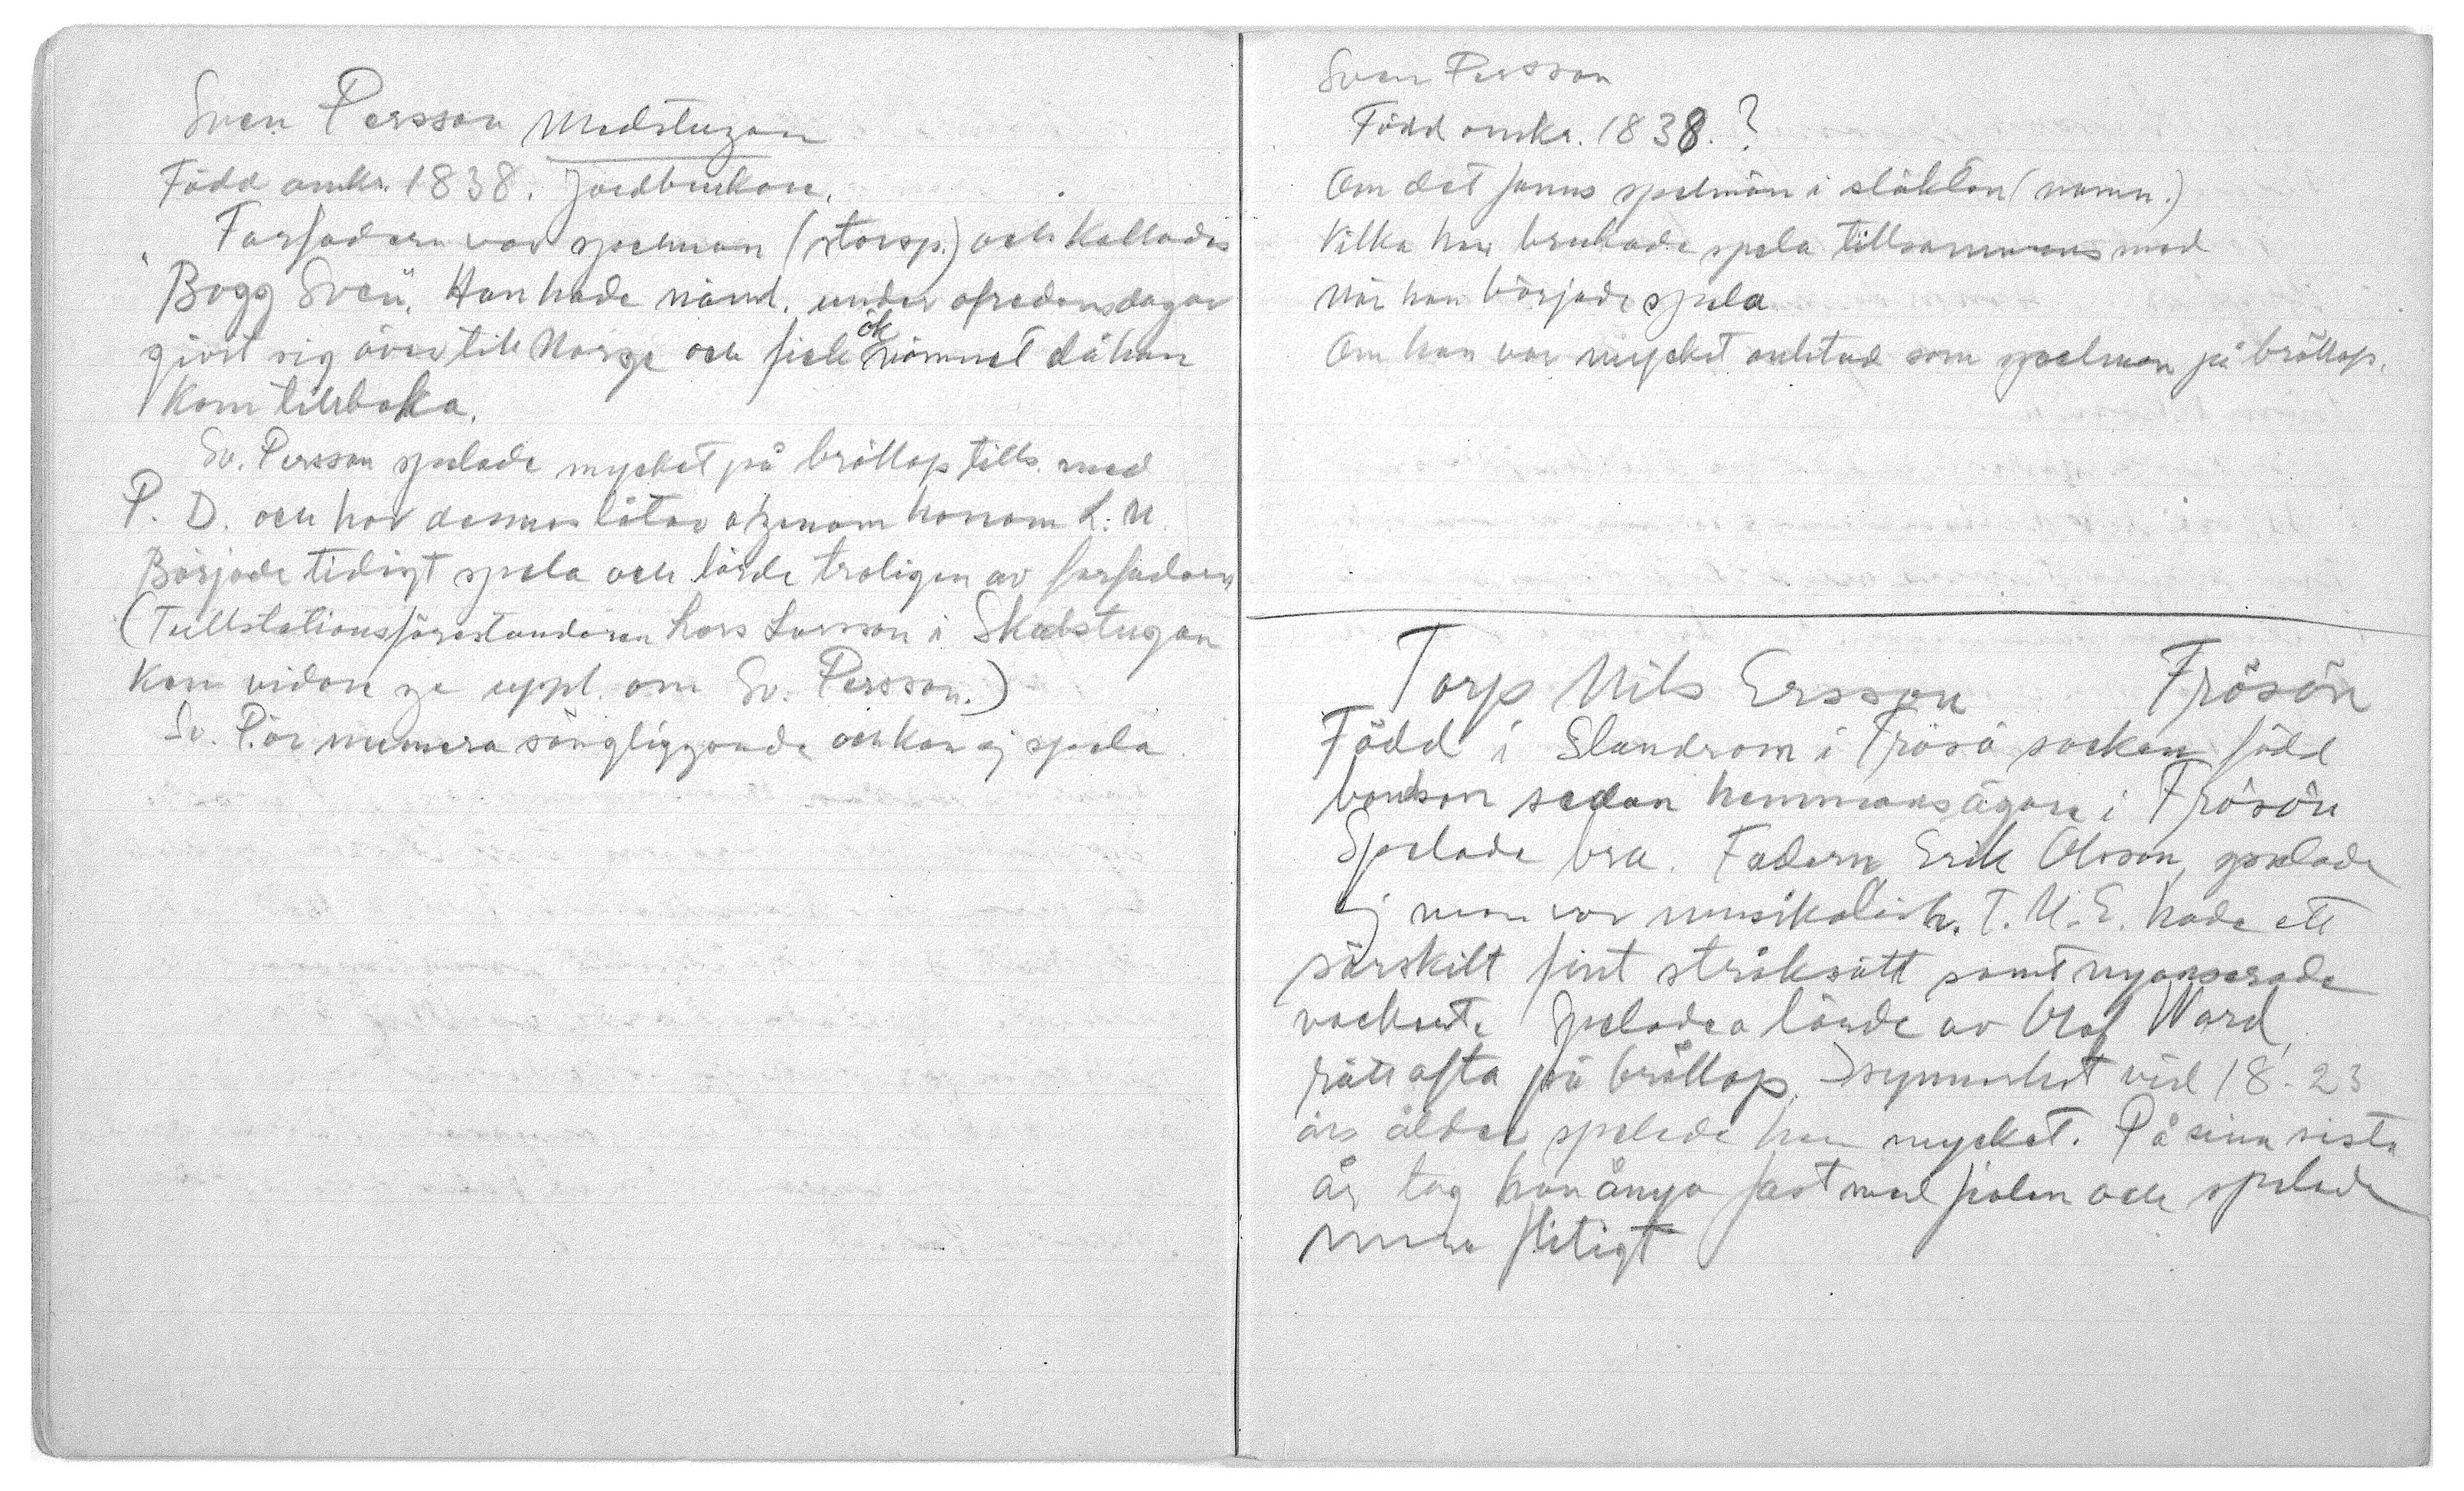 Sven Persson Medstugan
Född omkr. 1838. Jordbrukare.
Farfadern var spelman (storsp.) och kallades
Bogg Sven. Han hade näml. under ofredensdagar
givit sig över till Norge och fick öknämnet då han
kom tillbaka.
Sv. Persson spelade mycket på bröllop tills. med
P. D. och har dennes låtar genom honom L. N.
Började tidigt spela och lärde troligen av farfadern
(Tullstationsföreståndaren Lars Larsson i Skalstugan
kan vidare ge uppl. om Sv. Persson.)
Sv. P. är numera sängliggande och kan ej spela
Sven Persson
Född omkr. 1838. ?
Om det fanns spelmän i släkten (namn.)
Vilka han brukade spela tillsammans med
När han började spela
Om han var mycket anlitad som spelman på bröllop.
Torp Nils Ersson Frösön
Född i Slandrom i Frösö socken född
bondson sedan hemmansägare i Frösön
Spelade bra. Fadern, Erik Olsson, spelade
ej men var musikalisk. T. N. E. hade ett
särskilt fint stråksätt samt nyanserade
vackert. Spelade o lärde av Olof Ward,
rätt ofta på bröllop. I synnerhet vid 18-23
års ålder spelade han mycket. På sina sista
år tog han ånyo fast med fiolen och spelade
mera flitigt